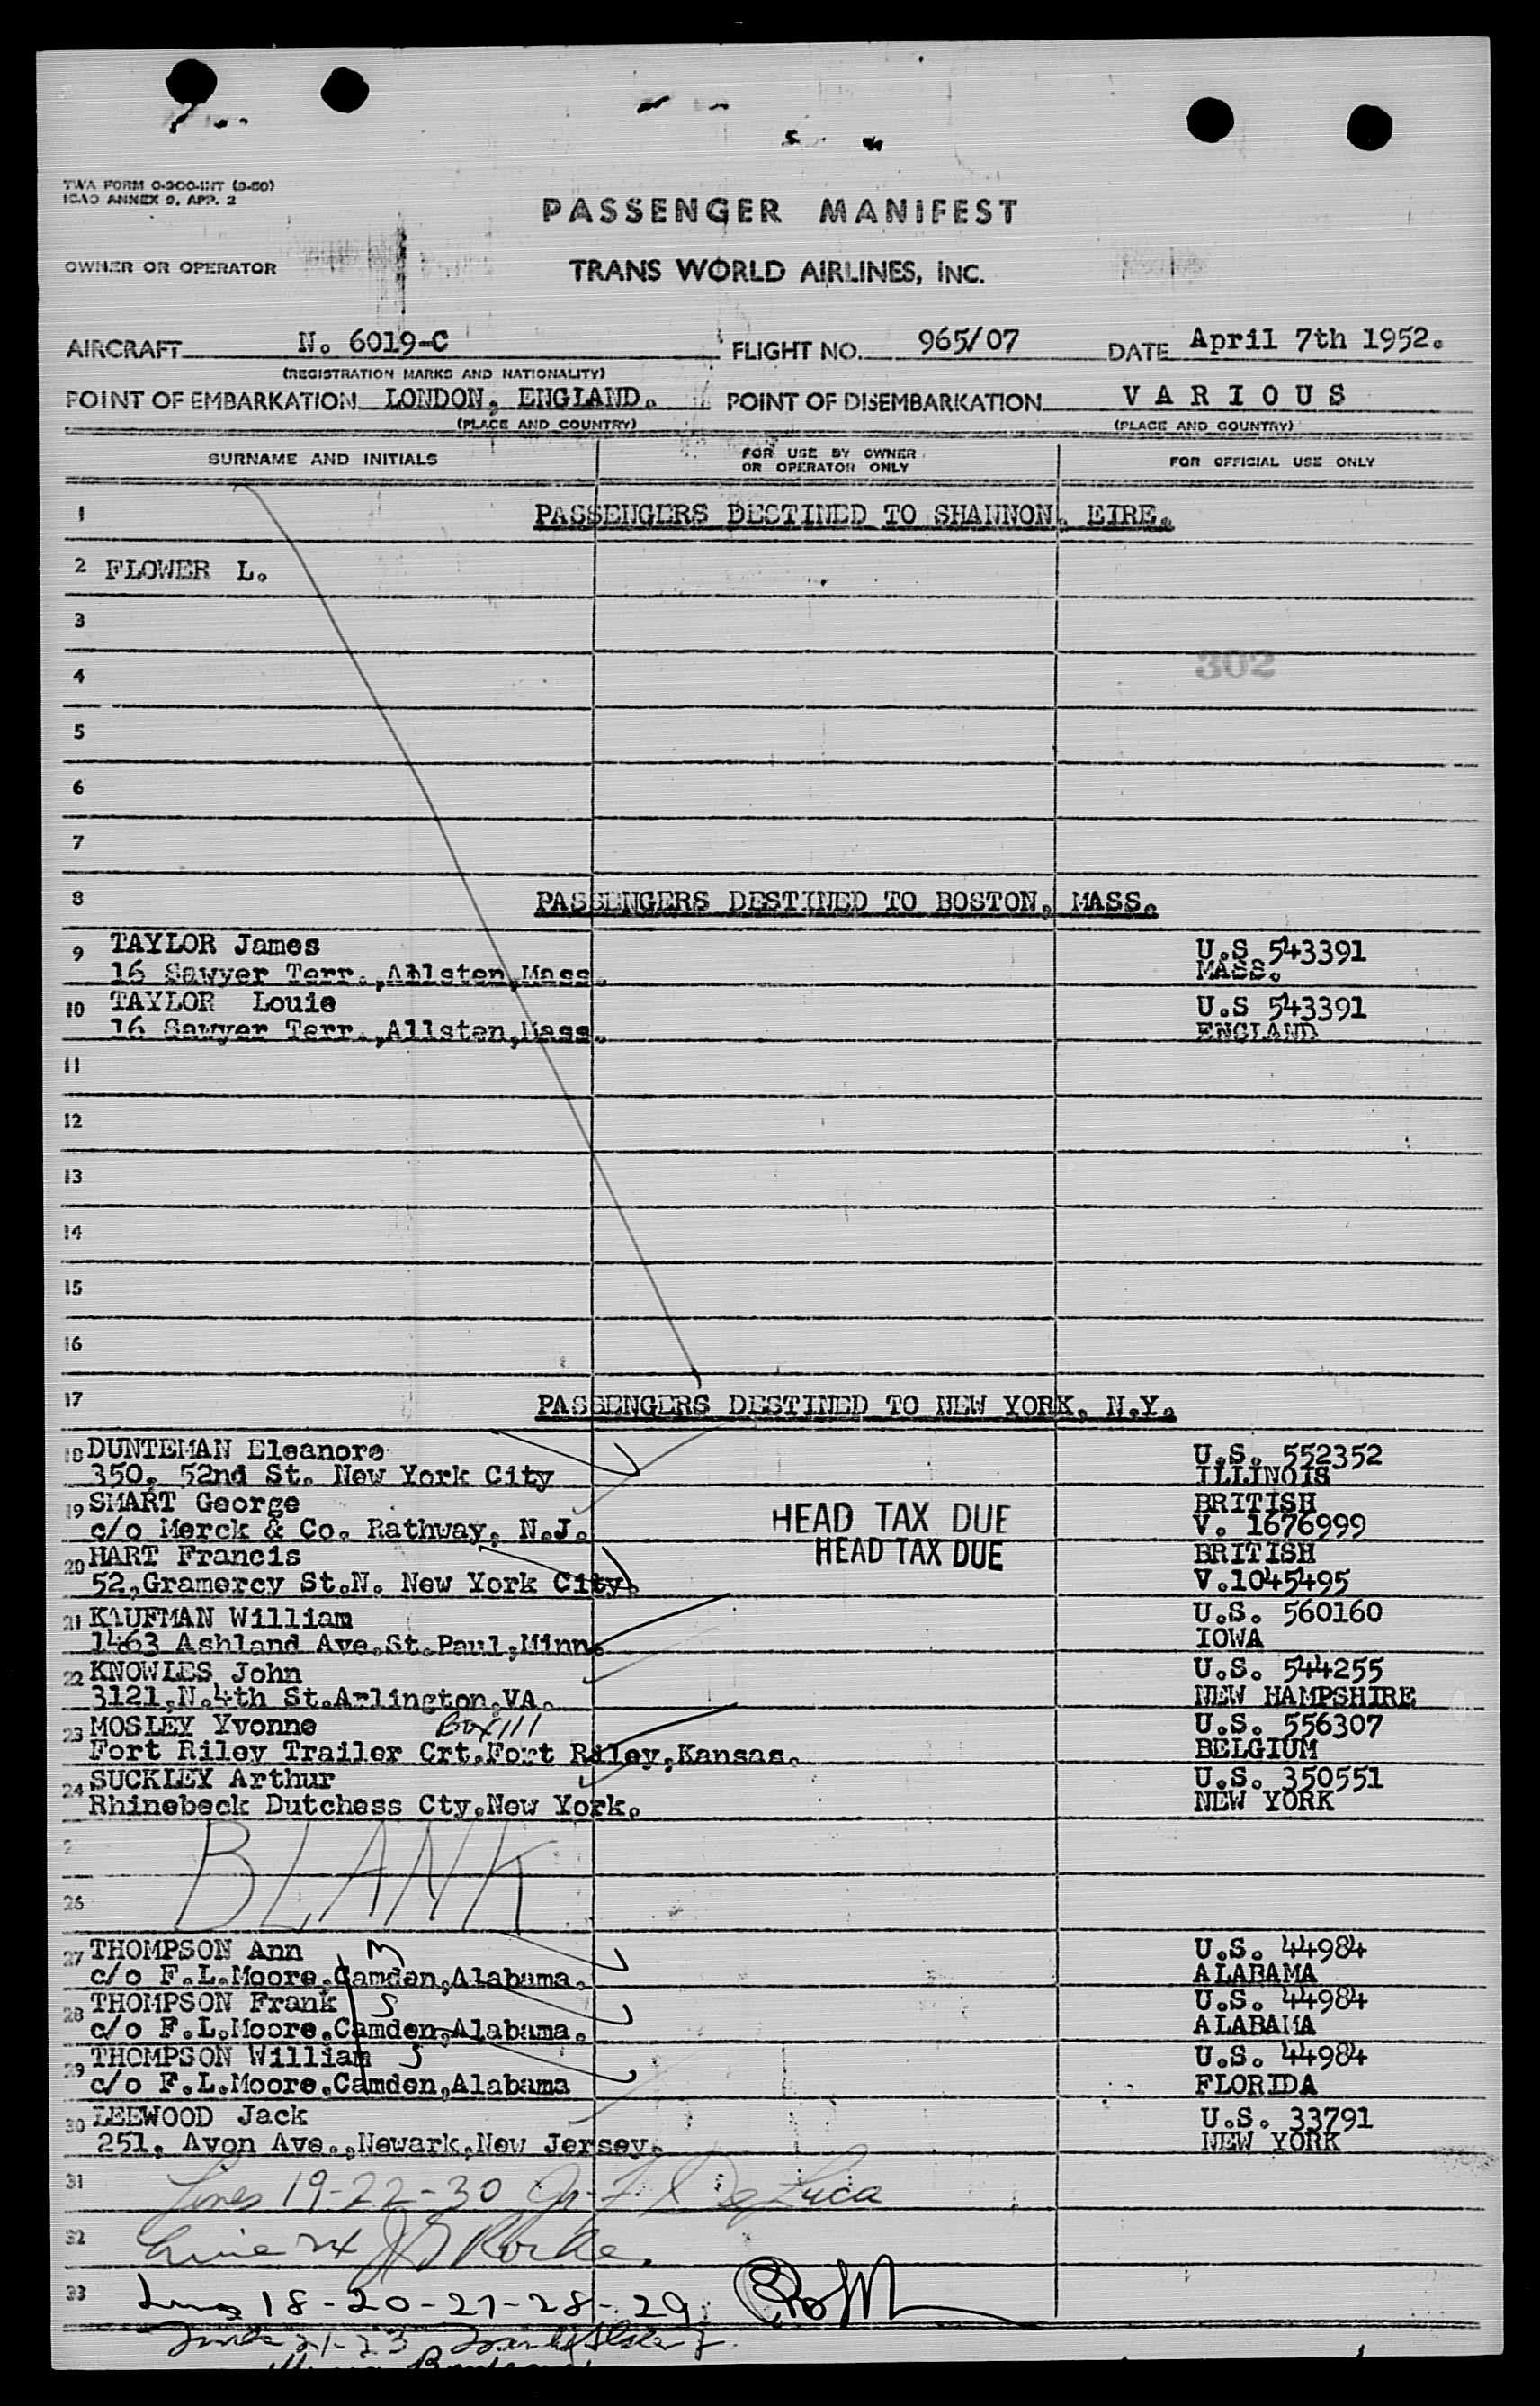 TWA FORM O-300-INT (3-50)
ICAO ANNEX 9, APP. 2
PASSENGER MANIFEST
OWNER OR OPERATOR
TRANS WORLD AIRLINES, INC.
AIRCRAFT N. 6019-C FLIGHT NO. 965/07 DATE April 7th 1952.
(REGISTRATION MARKS AND NATIONALITY)
POINT OF EMBARKATION LONDON, ENGLAND. POINT OF DISEMBARKATION VARIOUS
(PLACE AND COUNTRY) (PLACE AND COUNTRY)
SURNAME AND INITIALS FOR USE BY OWNER OR OPERATOR ONLY FOR OFFICIAL USE ONLY
1 PASSENGERS DESTINED TO SHANNON, EIRE.
2 FLOWER L.
3
302
4
5
6
7
8 PASSENGERS DESTINED TO BOSTON, MASS.
9 TAYLOR James U.S 543391
16 Sawyer Terr.,Allston,Mass. MASS.
10 TAYLOR Louie U.S 543391
16 Sawyer Terr.,Allsten,Mass. ENGLAND
11
12
13
14
15
16
17 PASSENGERS DESTINED TO NEW YORK, N.Y.
18 DUNTEMAN Eleanore U.S. 552352
350, 52nd St. New York City ILLINOIS
19 SMART George HEAD TAX DUE BRITISH
c/o Merck & Co. Rathway, N.J. V. 1676999
20 HART Francis HEAD TAX DUE BRITISH
52,Gramercy St.N. New York City. V.1045495
21 KAUFMAN William U.S. 560160
1463 Ashland Ave.St.Paul,Minn. IOWA
22 KNOWLES John U.S. 544255
3121,N.4th St.Arlington,VA. NEW HAMPSHIRE
23 MOSLEY Yvonne Box 111 U.S. 556307
Fort Riley Trailer Crt.Fort Riley,Kansas. BELGIUM
24 SUCKLEY Arthur U.S. 350551
Rhinebeck Dutchess Cty.New York. NEW YORK
2
BLANK
26
27 THOMPSON Ann M U.S. 44984
c/o F.L.Moore.Camden,Alabama. ALABAMA
28 THOMPSON Frank S U.S. 44984
c/o F.L.Moore.Camden,Alabama. ALABAMA
29 THOMPSON William S U.S. 44984
c/o F.L.Moore.Camden,Alabama FLORIDA
30 LEEWOOD Jack U.S. 33791
251, Avon Ave.,Newark,New Jersey. NEW YORK
31 Lines 19-22-30 De Luca
32 Line 24
33 Lines 18-20-27-28-29
21-23